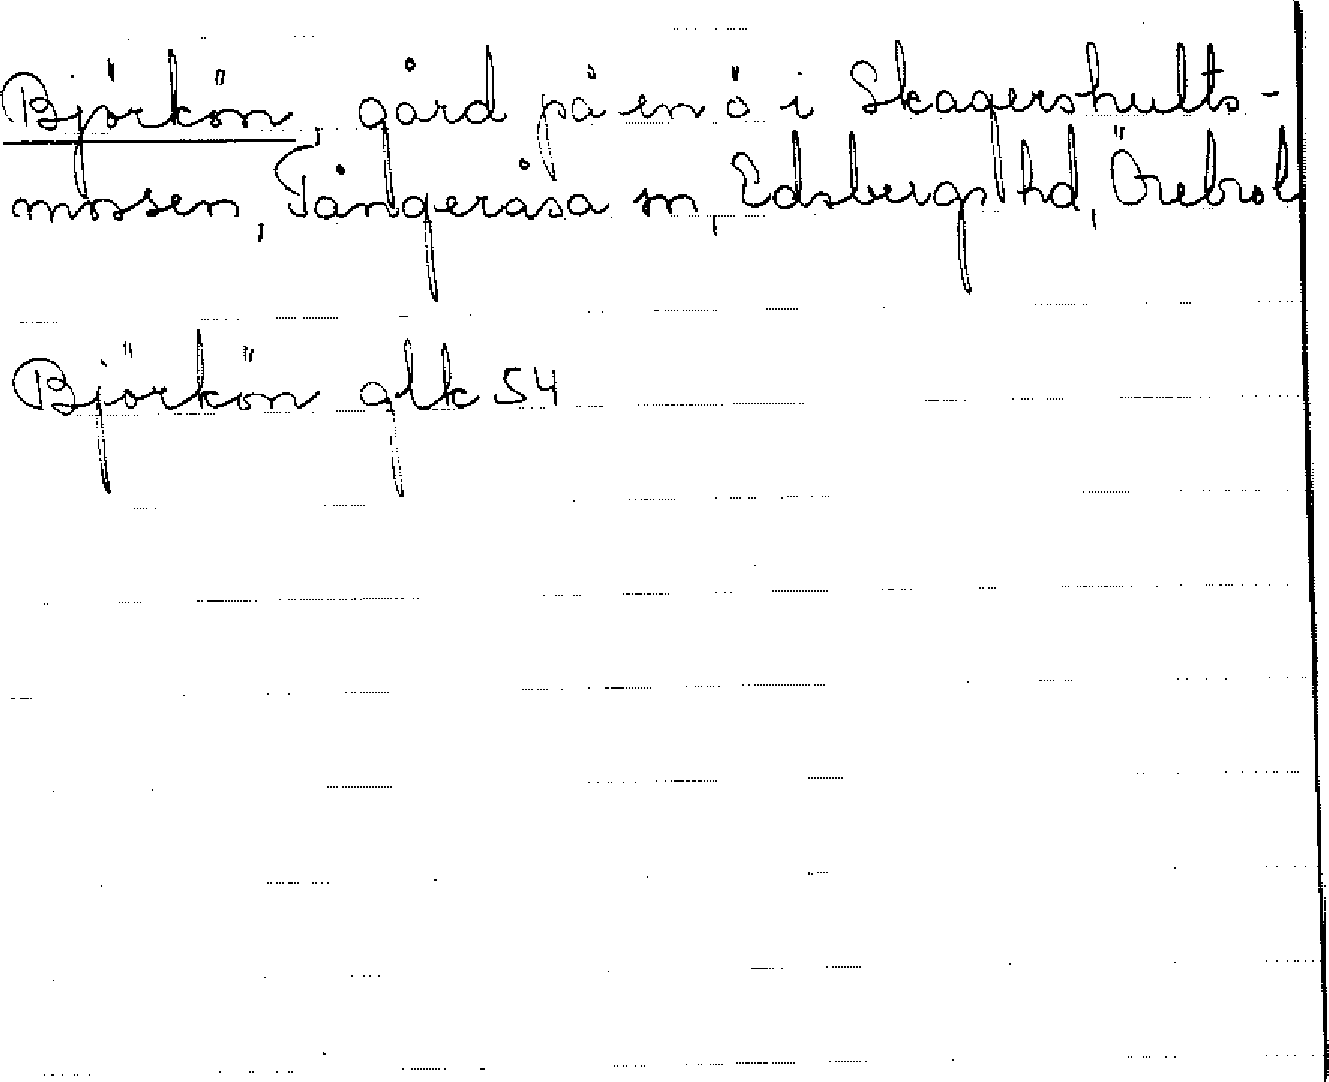 Björkön, gård på en ö i Skagershults-
mossen, Tångeråsa sn, Edsbergs hd, Örebro l
Björkön glk 54